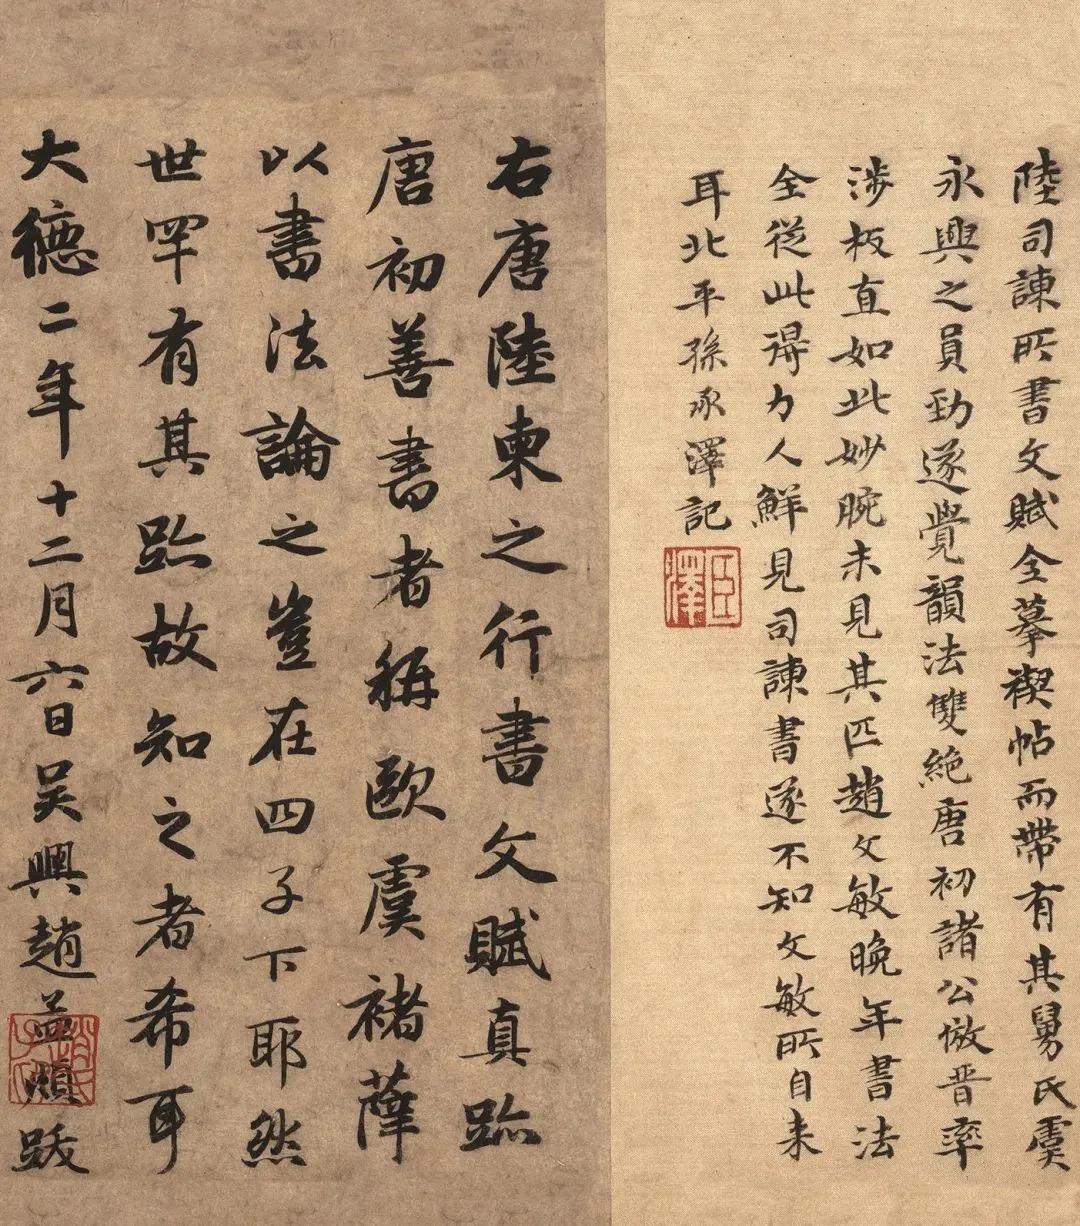 陸司諫所書文賦全摹禊帖而帶有其舅氏虞
永興之員勁遂覺韻法雙絶唐初諸公倣晉率
涉板直如此妙腕未見其匹趙文敏晚年書法
全從此得力人鮮見司諫書遂不知文敏所自来
耳北平孫承澤記
臣澤
右唐陸柬之行書文賦真跡
唐初善書者稱歐虞褚薛
以書法論之豈在四子下耶然
世罕有其跡故知之者希耳
大德二年十二月六日吴興趙孟頫跋
趙氏子昂